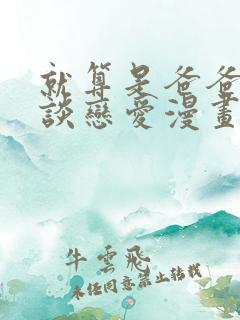 就算是爸爸
談戀愛漫畫
牛雲飛
未经同意禁止转载